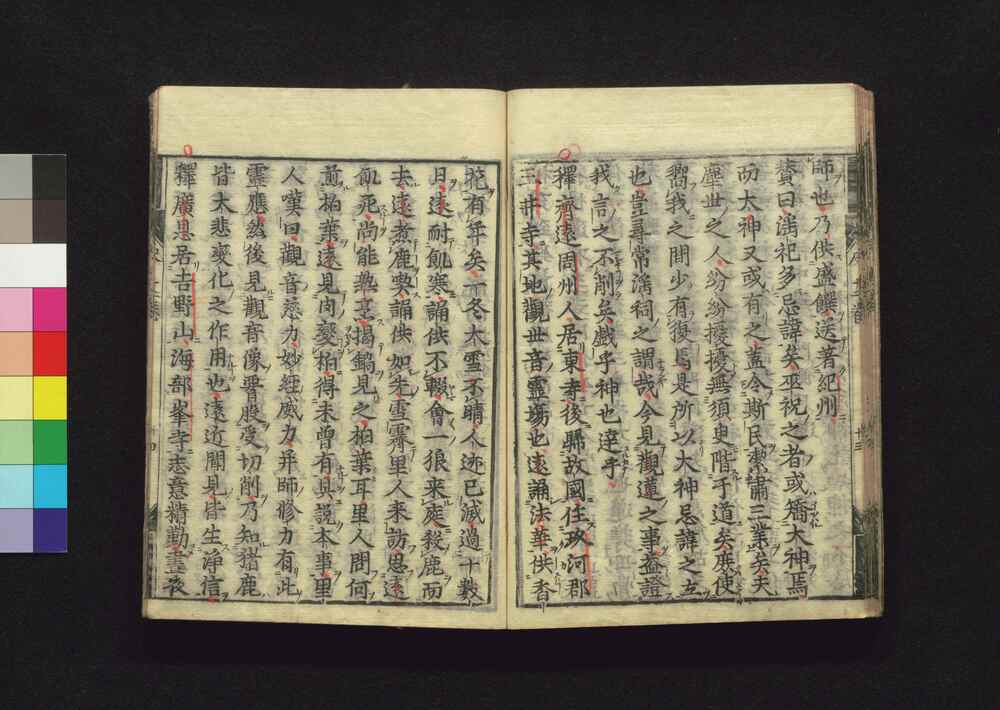 師也乃供盛饌送著紀州
賛曰淫祀多忌諱矣巫祝之者或矯大神焉
而大神又或有之蓋令斯民絜肅三業矣夫
塵世之人紛紛擾擾無須臾階于道矣庶使
嚮我之間少有復焉是所以大神忌諱之立
也豈尋常淫祠之謂哉今見觀蓮之事益證
我言之不削矣戲乎神也達乎
釋齊遠周州人居東寺後歸故國任玖河郡
三井寺其地觀世音靈場也遠誦法華供香
花有年矣一冬大雪不晴人迹已滅過十數
日遠耐飢寒誦供不輟會一狼来庭殺鹿而
去遠煮鹿臠誦供如先雪霽里人来訪思遠
飢死尚能爇烹揭鍋見之柏葉耳里人問何
煎柏葉遠見肉變柏得未曾有具説本事里
人嘆曰觀音慈力妙經威力并師修力有此
靈應然後見觀音像脊股受切削乃知猪鹿
皆大悲變化之作用也遠近聞見皆生淨信
釋廣恩居古野山海部峯寺志意精勤晝夜